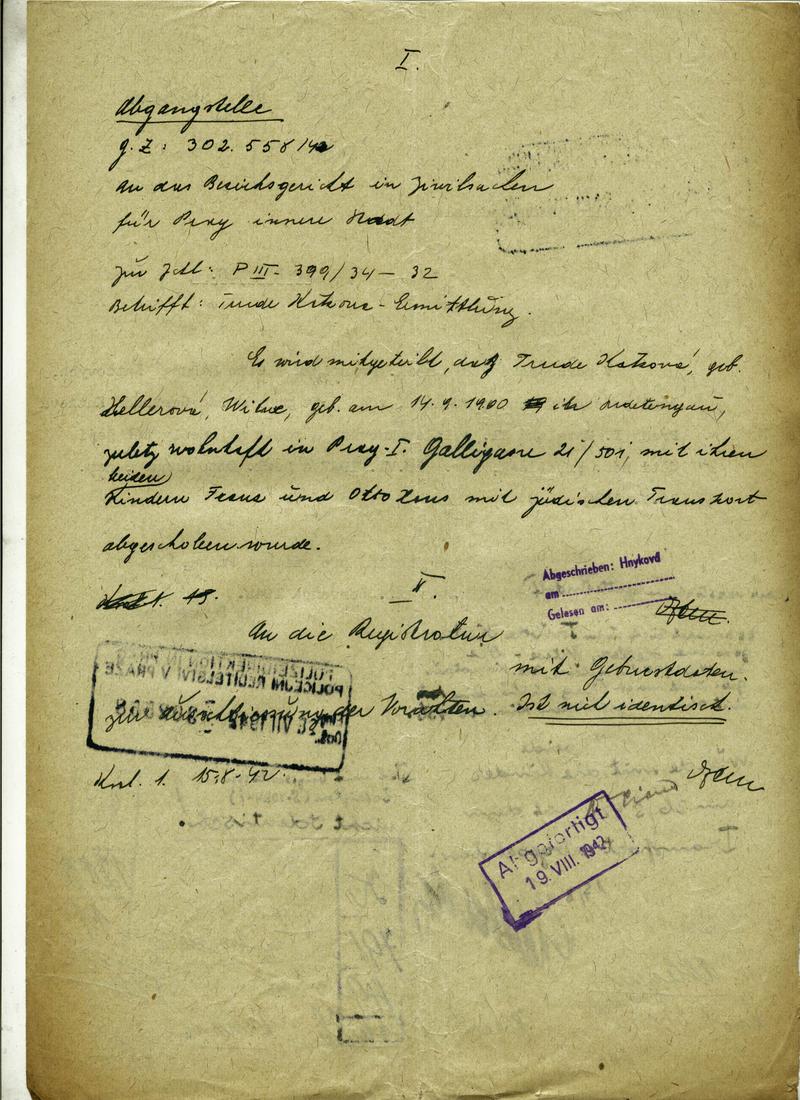 I.
Abgangstelle
g.Z: 302.558/42
An das Bezirksgericht in Zivilsachen
für Prag innere Stadt
Zur Zahl: P III - 399/34 - 32
Betrifft: Trude Katzova - Ermittlung.
Es wird mitgeteilt, daß Trude Katzová, geb.
Hellerová, Witwe, geb. am 14.9.1900 in
zuletz wohnhaft in Prag-I. Galligasse 21/501, mit ihren
beiden
Kindern und mit jüdischen Transport
abgeschoben wurde.
II.
Abgeschrieben: Hnyková
am
Gelesen am:
An die Registratur
mit Geburtsdaten.
POLIZEIDIREKTION IN PRAG
POLICEJNÍ ŘEDITELSTVÍ V PRAZE
zur der Vorakten. Ist mit identisch.
Knl. 1. 15.8.42.
Abgefertigt
19. VIII. 1942